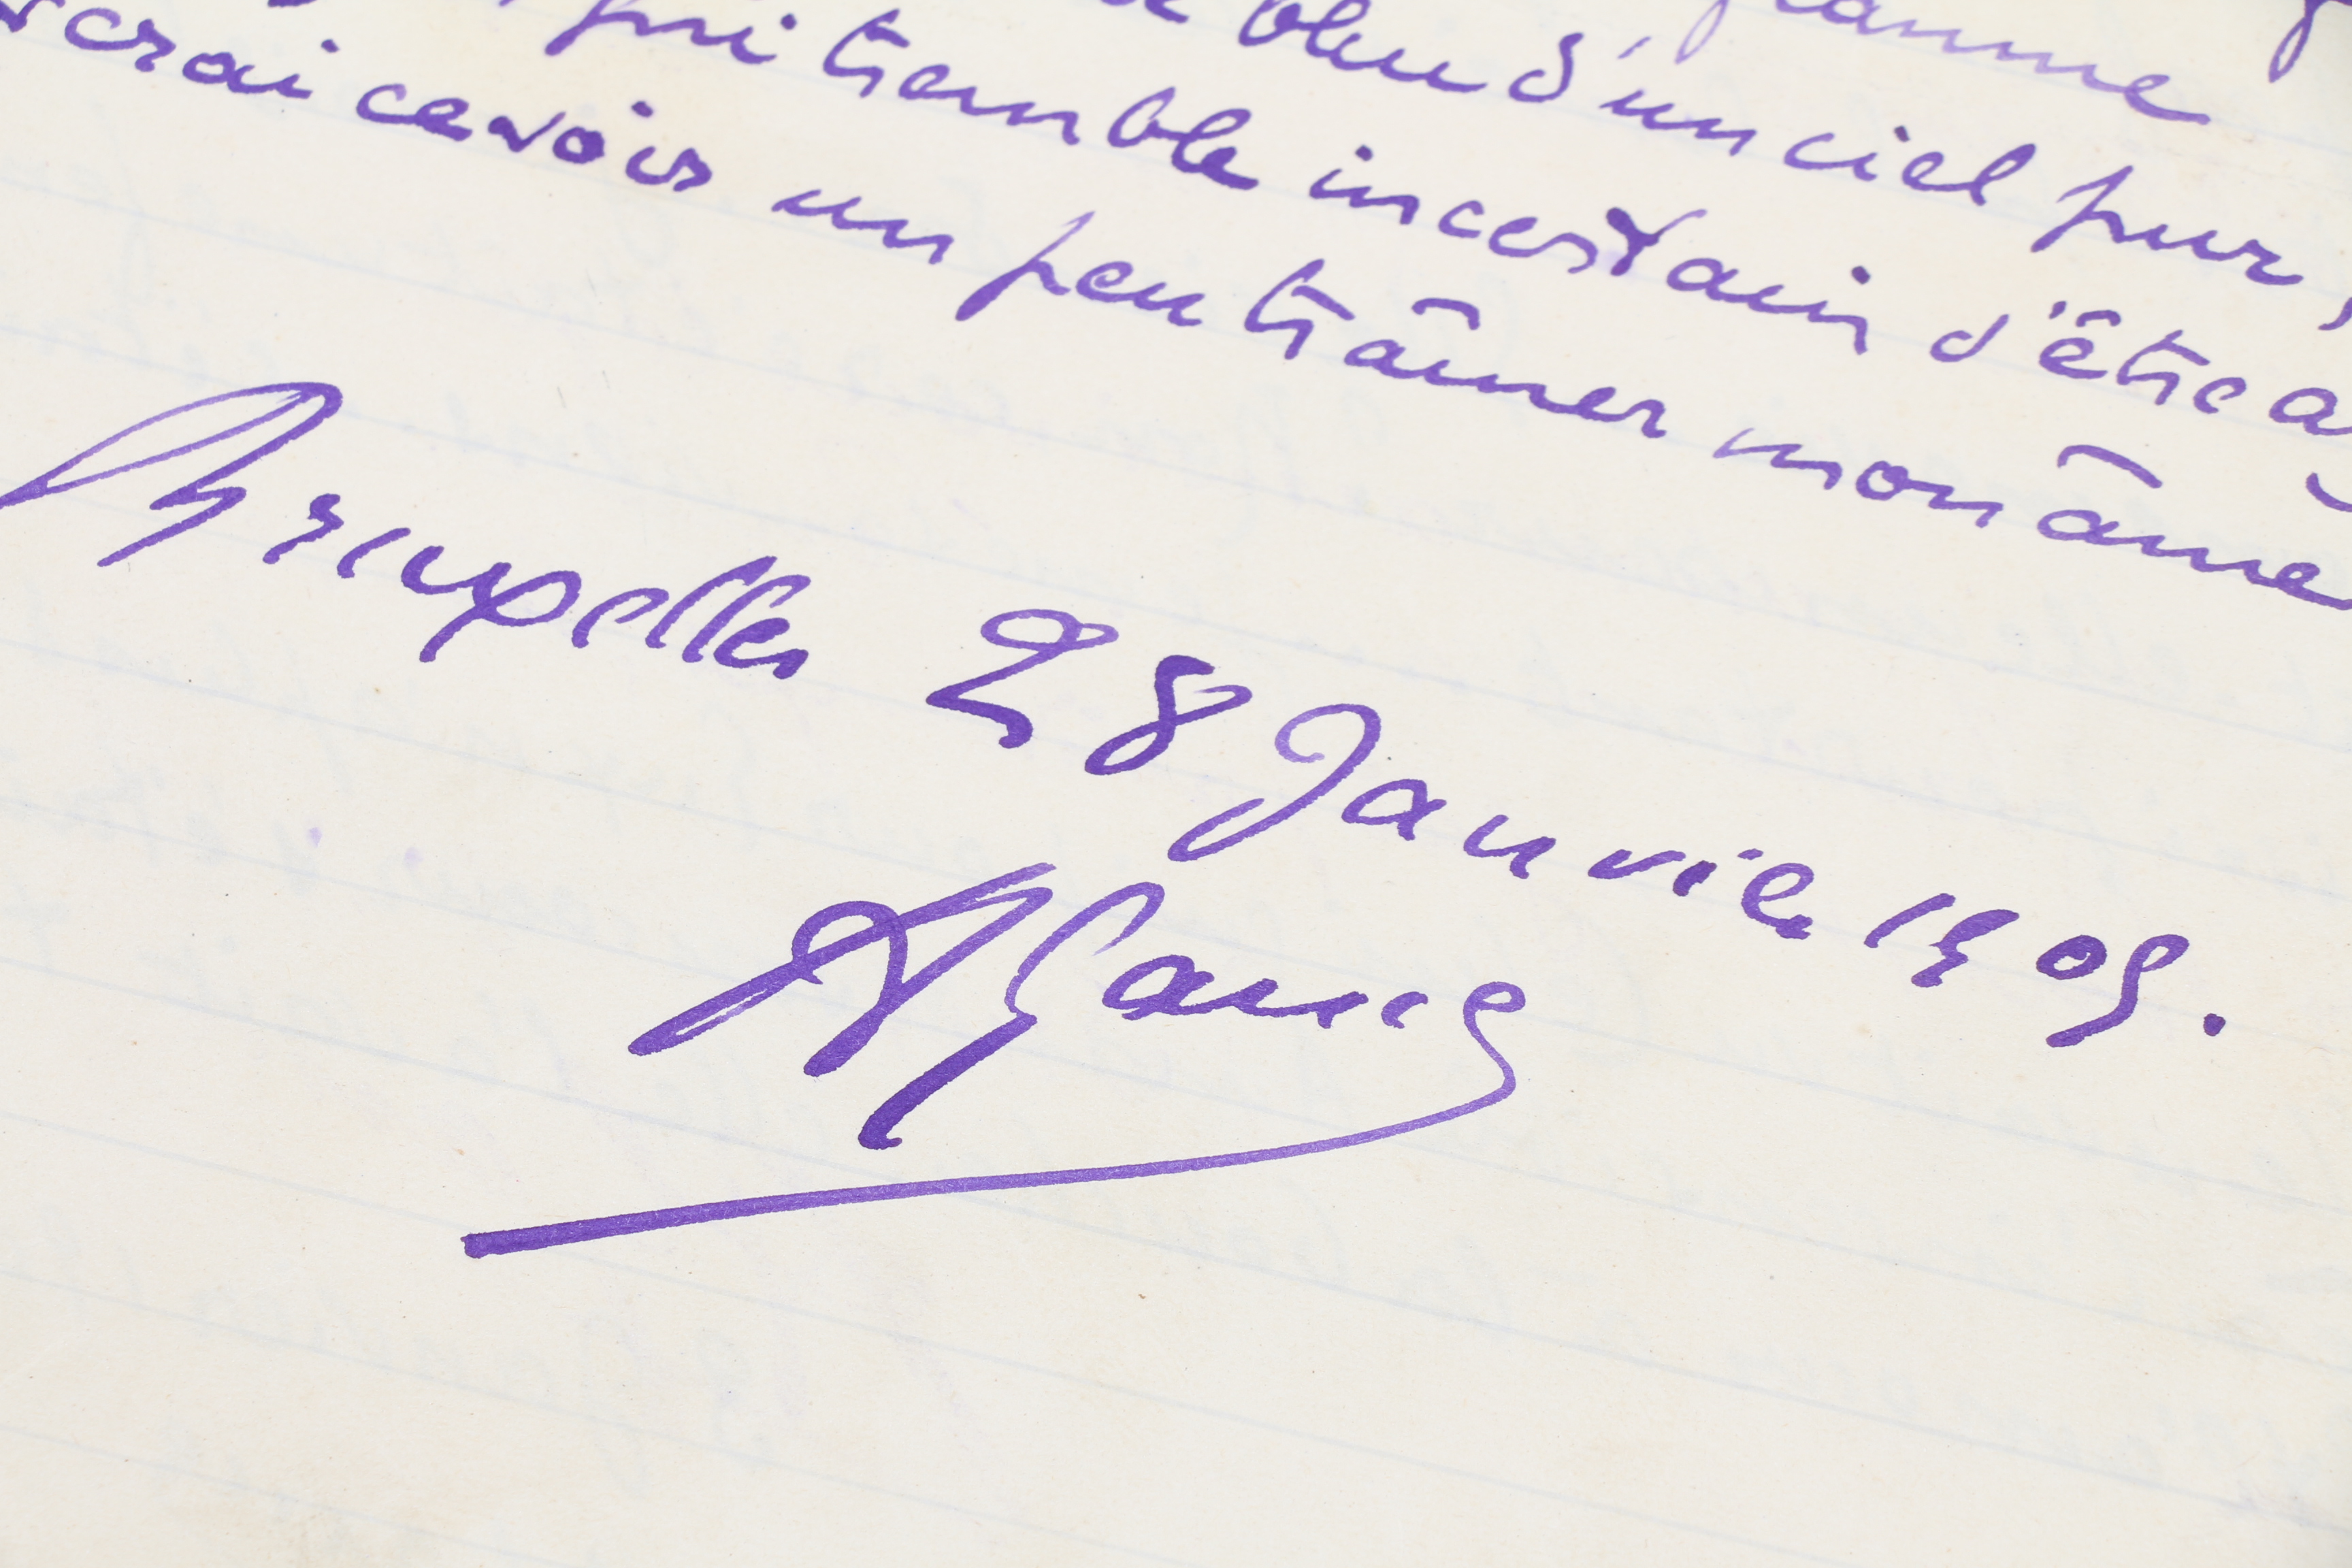 flamme
bleu d'un ciel pur,
qui tremble incertain d'être a
cevoir un peu traîner mon âme
Bruxelles 28 Janvier 1909.